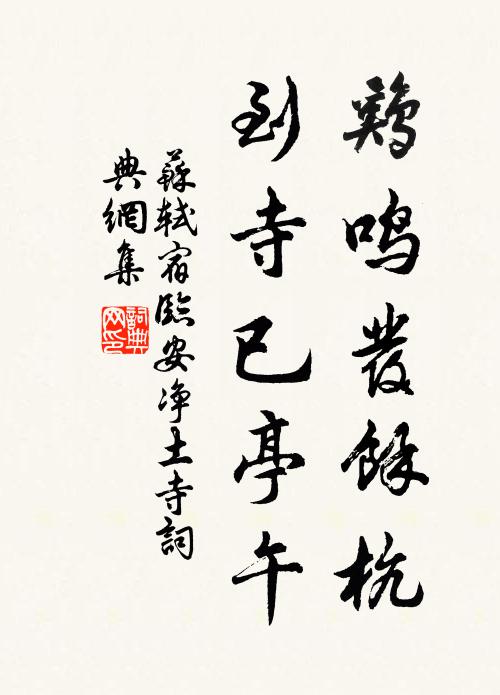 鷄鳴發餘杭
到寺已亭午
蘇軾宿臨安净土寺詞
典網集
詞典
网印